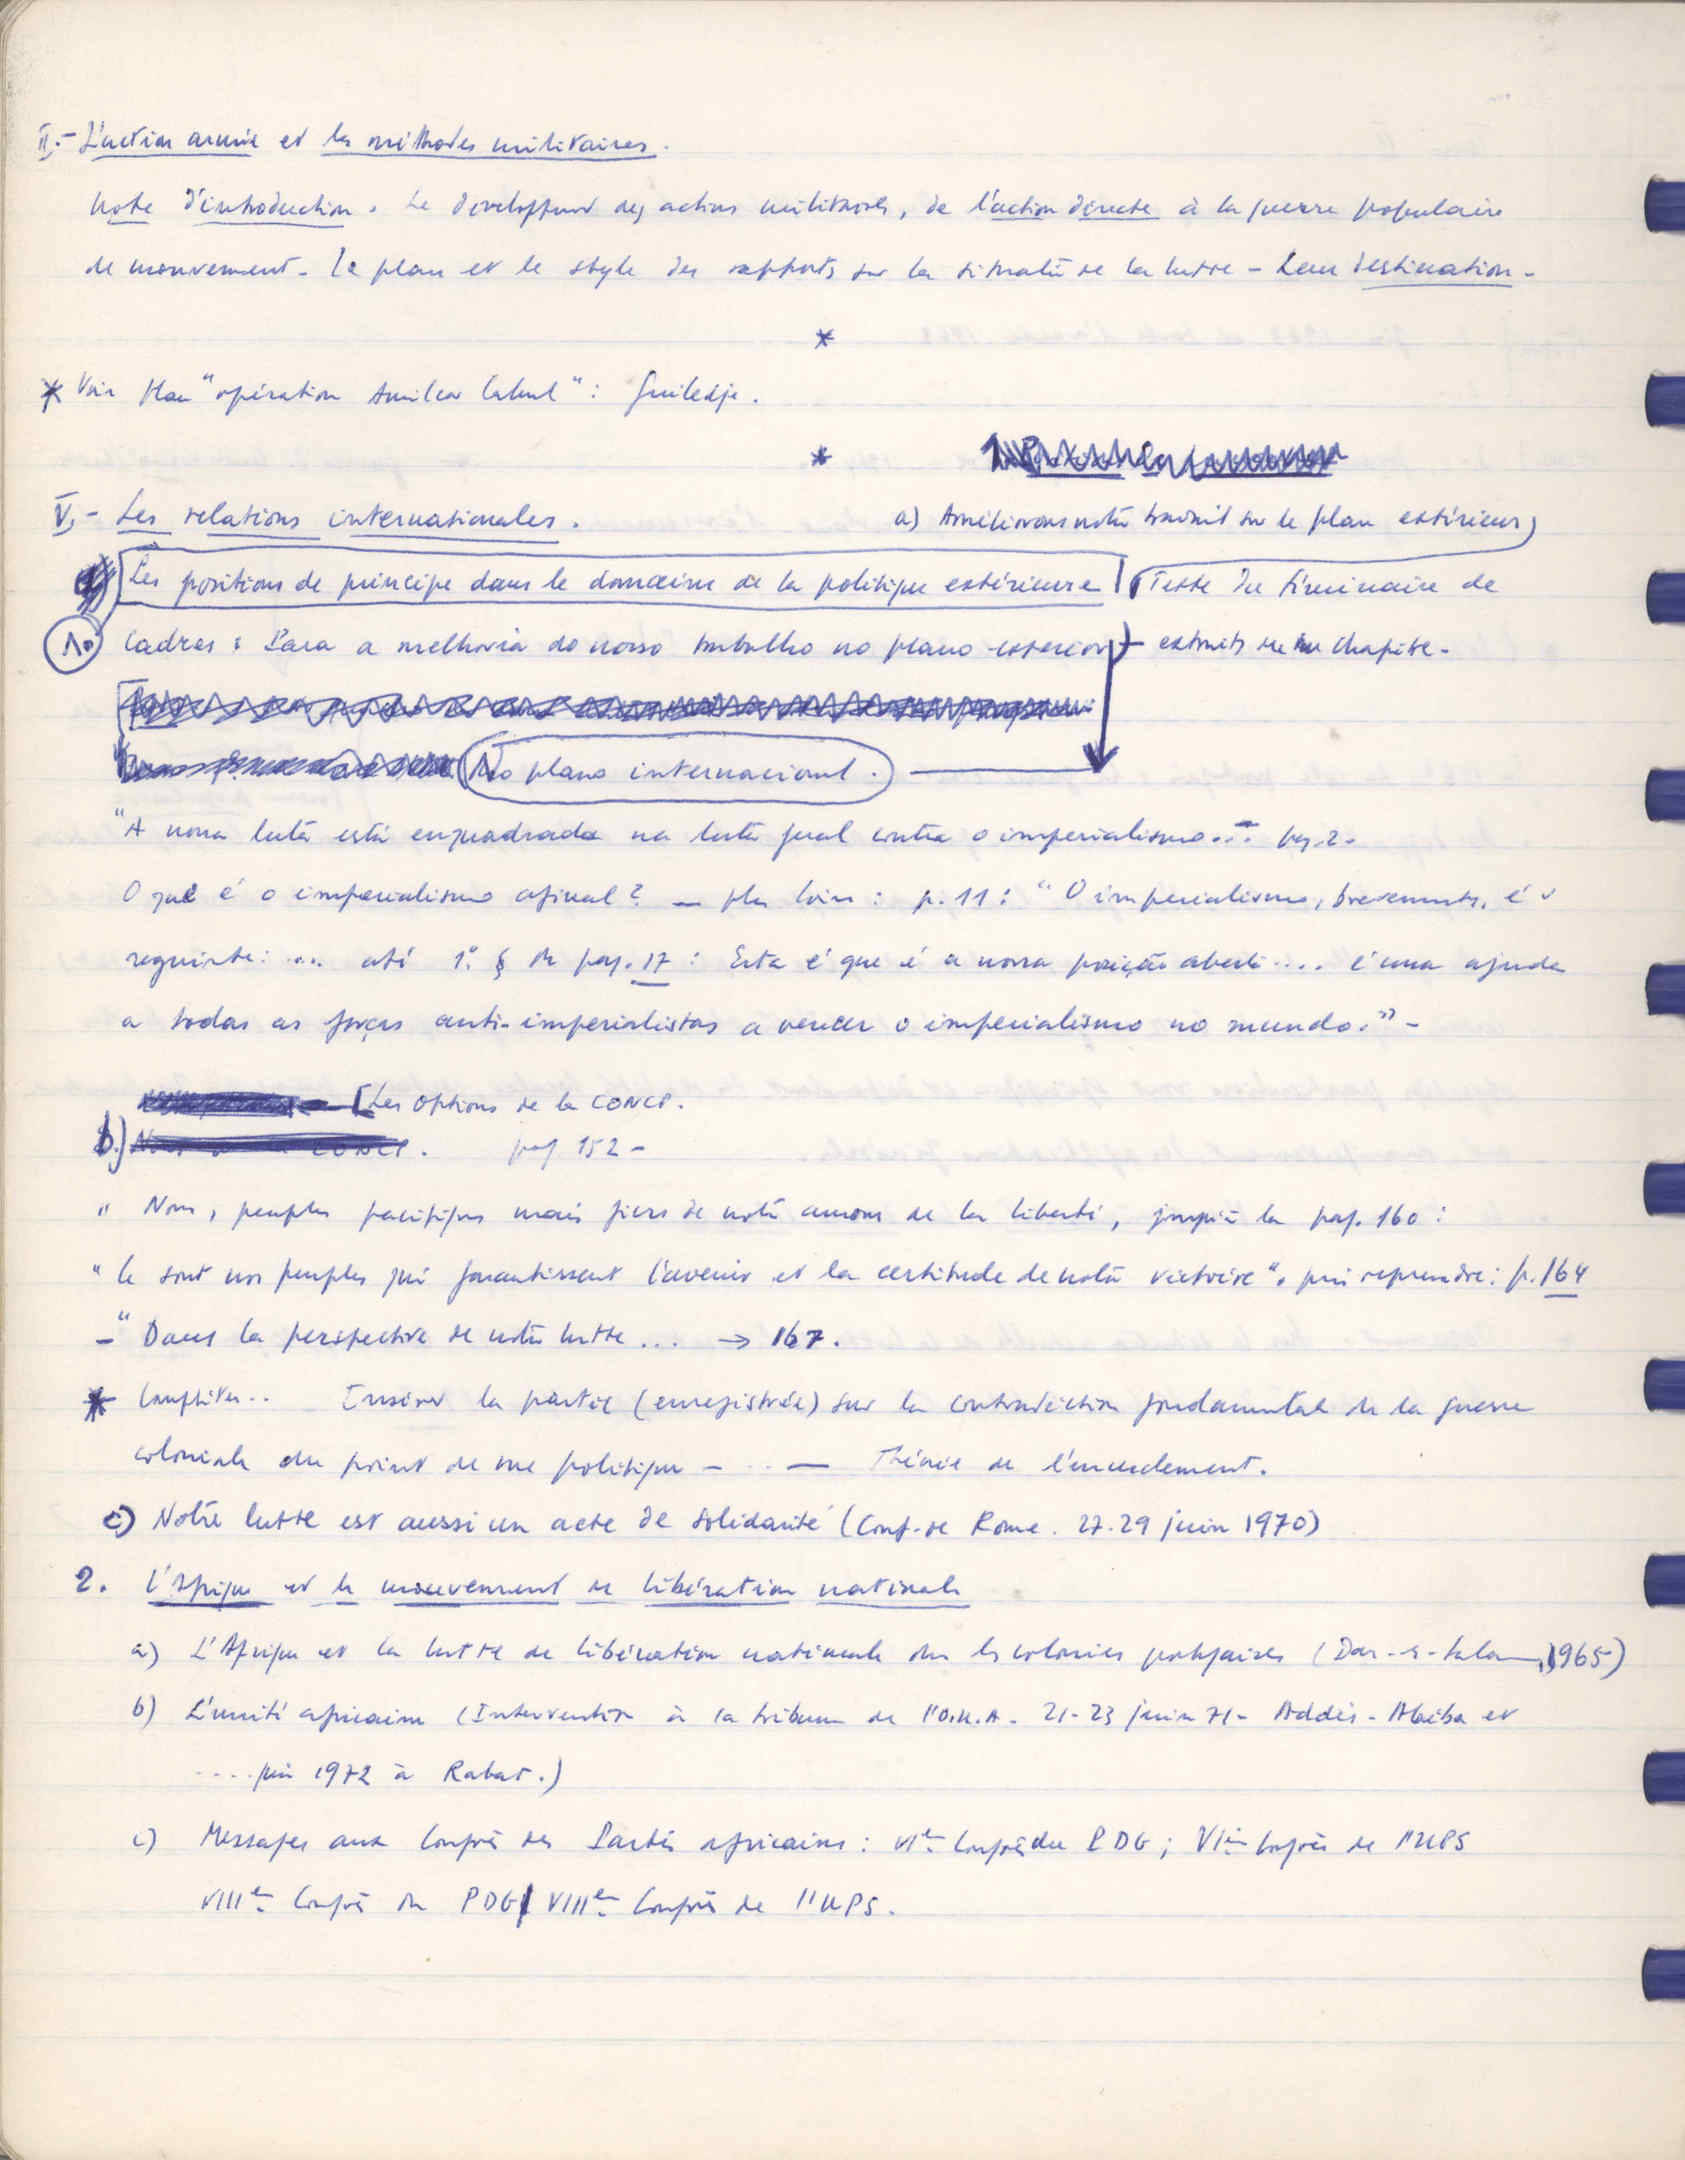 II.- L'action armée et les méthodes militaires.
Note d'introduction. Le développement des actions militaires, de l'action directe à la guerre populaire
de mouvement - Le plan et le style des rapports sur la situation de la lutte - Leur destination -
*
* Voir Plan "opération Amilcar Cabral" : Guiledje.
*
V.- Les relations internationales.
a) Améliorons notre travail sur le plan extérieur)
Les positions de principe dans le domaine de la politique extérieure (Texte du Séminaire de
1o Cadres : Para a melhoria do nosso trabalho no plano exterior) extraits de ce chapitre -
No plano internacional.
"A nossa luta está enquadrada na luta geral contra o imperialismo... - pag. 2.
O que é o imperialismo afinal ? - plus loin : p. 11 : "O imperialismo, brevemente, é o
seguinte : ... até 1º § da pag. 17 : Esta é que é a nossa posição aberta .... é uma ajuda
a todas as forças anti-imperialistas a vencer o imperialismo no mundo." -
[Les Options de la CONCP.
b.) CONCP. pag 152 -
" Nous, peuples pacifiques mais fiers de notre amour de la liberté, jusqu'à la pag. 160 :
" Ce sont nos peuples qui garantissent l'avenir et la certitude de notre victoire". puis reprendre : p. 164
- " Dans la perspective de notre lutte ... → 167.
* Compléter .. Insérer la partie (enregistrée) sur la contradiction fondamentale de la guerre
coloniale du point de vue politique - .. — Théorie de l'encerclement.
c) Notre lutte est aussi un acte de solidarité (Conf. de Rome. 27-29 juin 1970)
2. L'Afrique et le mouvement de libération nationale
a) L'Afrique et la lutte de libération nationale dans les colonies portugaises (Dar-es-Salam, 1965)
b) L'unité africaine (Intervention à la tribune de l'O.U.A - 21-23 juin 71 - Addis-Abéba et
.... juin 1972 à Rabat.)
c) Messages aux Congrès des Partis africains : Congrès du PDG ; Congrès de l'UPS
VIIIe Congrès du PDG / VIIIe Congrès de l'UPS.